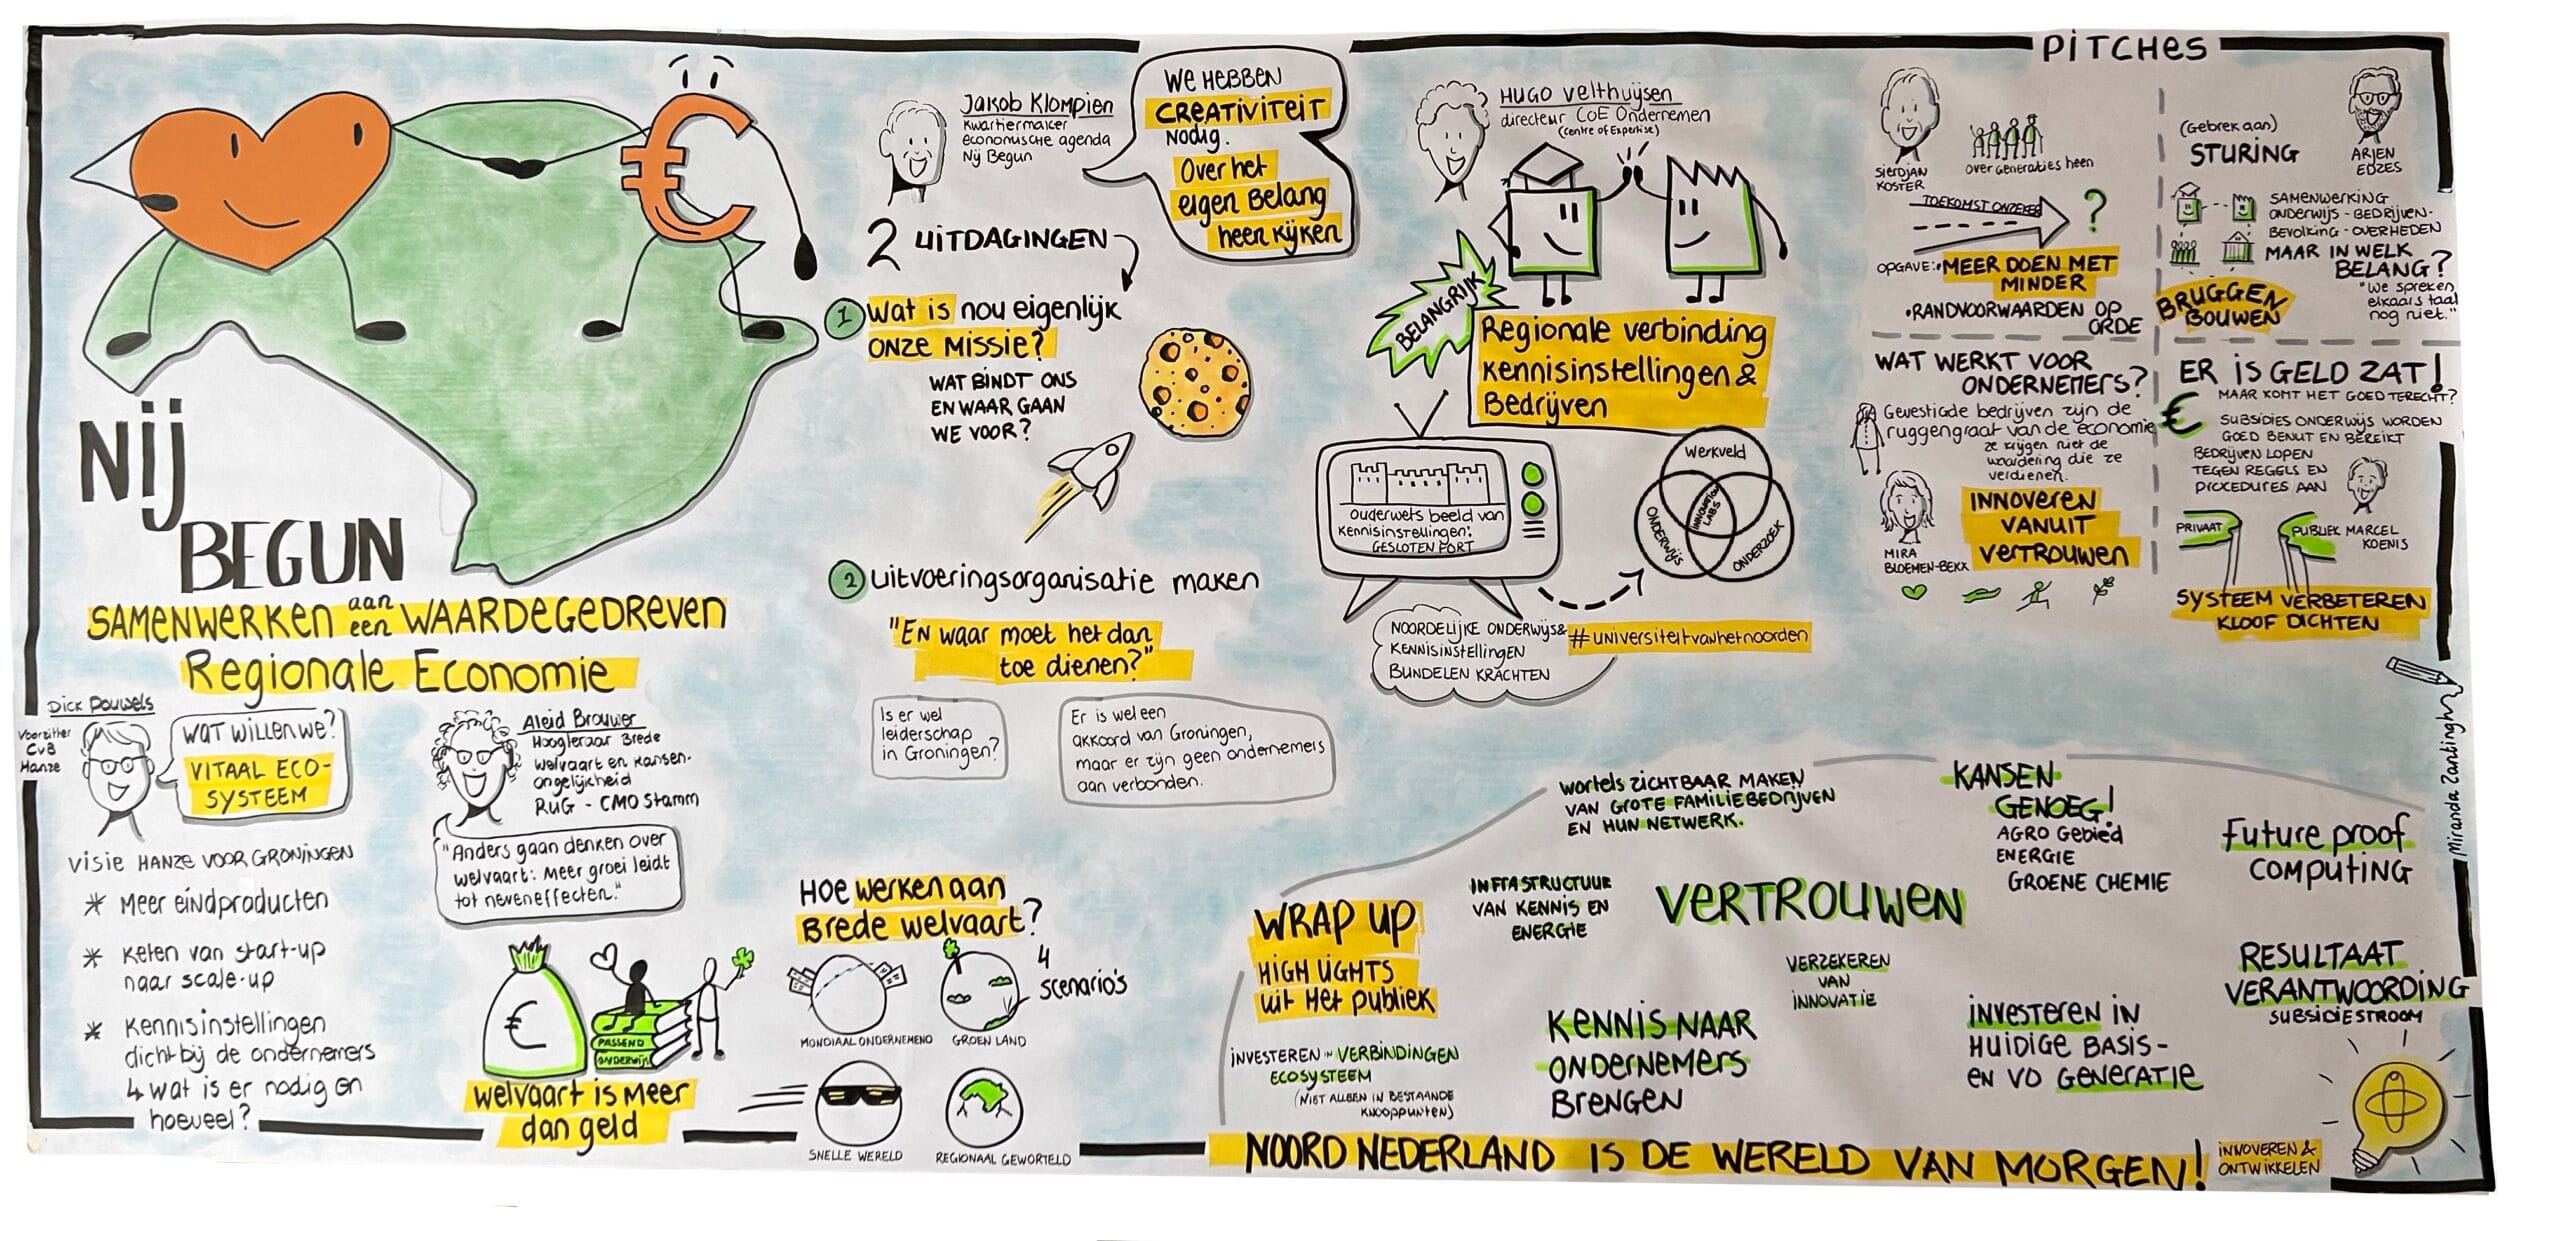 NIJ
BEGUN
SAMENWERKEN aan een WAARDEGEDREVEN
Regionale Economie
Dick Pouwels
Voorzitter
CvB
Hanze
WAT WILLEN WE?
VITAAL ECO-
SYSTEEM
VISIE HANZE VOOR GRONINGEN
* Meer eindproducten
* Keten van start-up
naar scale-up
* Kennisinstellingen
dicht bij de ondernemers
↳ wat is er nodig en
hoeveel?
Aleid Brouwer
Hoogleraar Brede
welvaart en kansen-
ongelijkheid
RUG - CMO Stamm
"Anders gaan denken over
welvaart: Meer groei leidt
tot neveneffecten."
€
PASSEND
ONDERWIJS
Welvaart is Meer
dan geld
HOE werken aan
Brede welvaart?
4
scenario's
MONDIAAL ONDERNEMEND
GROEN LAND
SNELLE WERELD
REGIONAAL GEWORTELD
Jakob Klompien
Kwartiermaker
economische agenda
Nij Begun
WE HEBBEN
CREATIVITEIT
NODIG.
Over het
eigen Belang
heen kijken
2 UITDAGINGEN
1 Wat is nou eigenlijk
ONZE MISSIE?
WAT BINDT ONS
EN WAAR GAAN
WE VOOR?
2 uitvoeringsorganisatie maken
"EN waar moet het dan
toe dienen?"
Is er wel
leiderschap
in Groningen?
Er is wel een
akkoord van Groningen,
maar er zijn geen ondernemers
aan verbonden.
HUGO Velthuijsen
directeur CoE Ondernemen
(Centre of Expertise)
BELANGRIJK
Regionale verbinding
Kennisinstellingen &
Bedrijven
Ouderwets beeld van
Kennisinstellingen:
GESLOTEN FORT
Werkveld
ONDERWIJS
ONDERZOEK
INNOVATION
LABS
NOORDELIJKE ONDERWIJS&
KENNISINSTELLINGEN
BUNDELEN KRACHTEN
#universiteitvanhetnoorden
PITCHES
SIERDJAN
KOSTER
Over Generaties heen
TOEKOMST ONZEKER
?
OPGAVE: • MEER DOEN MET
MINDER
• RANDVOORWAARDEN OP
ORDE
(Gebrek aan)
STURING
ARJEN
EDZES
SAMENWERKING
ONDERWIJS - BEDRIJVEN-
BEVOLKING - OVERHEDEN
MAAR IN WELK
BELANG?
"We spreken
elkaars taal
nog niet."
BRUGGEN
BOUWEN
WAT WERKT VOOR
ONDERNEMERS?
Gevestigde bedrijven zijn de
ruggengraat van de economie
ze krijgen niet de
waardering die ze
verdienen.
INNOVEREN
VANUIT
VERTROUWEN
MIRA
BLOEMEN-BEKX
ER IS GELD ZAT!
MAAR KOMT HET GOED TERECHT?
€ SUBSIDIES ONDERWIJS WORDEN
GOED BENUT EN BEREIKT
BEDRIJVEN LOPEN
TEGEN REGELS EN
PROCEDURES AAN
PRIVAAT
PUBLIEK
MARCEL
KOENIS
SYSTEEM VERBETEREN
KLOOF DICHTEN
Miranda Zantingh
WRAP UP
HIGHLIGHTS
uit Het publiek
wortels ZICHTBAAR MAKEN
VAN GROTE FAMILIEBEDRIJVEN
EN HUN NETWERK.
KANSEN
GENOEG!
AGRO Gebied
ENERGIE
GROENE CHEMIE
Future proof
COMPUTING
INFRASTRUCTUUR
VAN KENNIS EN
ENERGIE
VERTROUWEN
VERZEKEREN
VAN
INNOVATIE
RESULTAAT
VERANTWOORDING
SUBSIDIESTROOM
INVESTEREN IN VERBINDINGEN
ECOSYSTEEM
(NIET ALLEEN IN BESTAANDE
KNOOPPUNTEN)
KENNIS NAAR
ONDERNEMERS
BRENGEN
INVESTEREN IN
HUIDIGE BASIS-
EN VO GENERATIE
NOORD NEDERLAND IS DE WERELD VAN MORGEN!
INNOVEREN &
ONTWIKKELEN